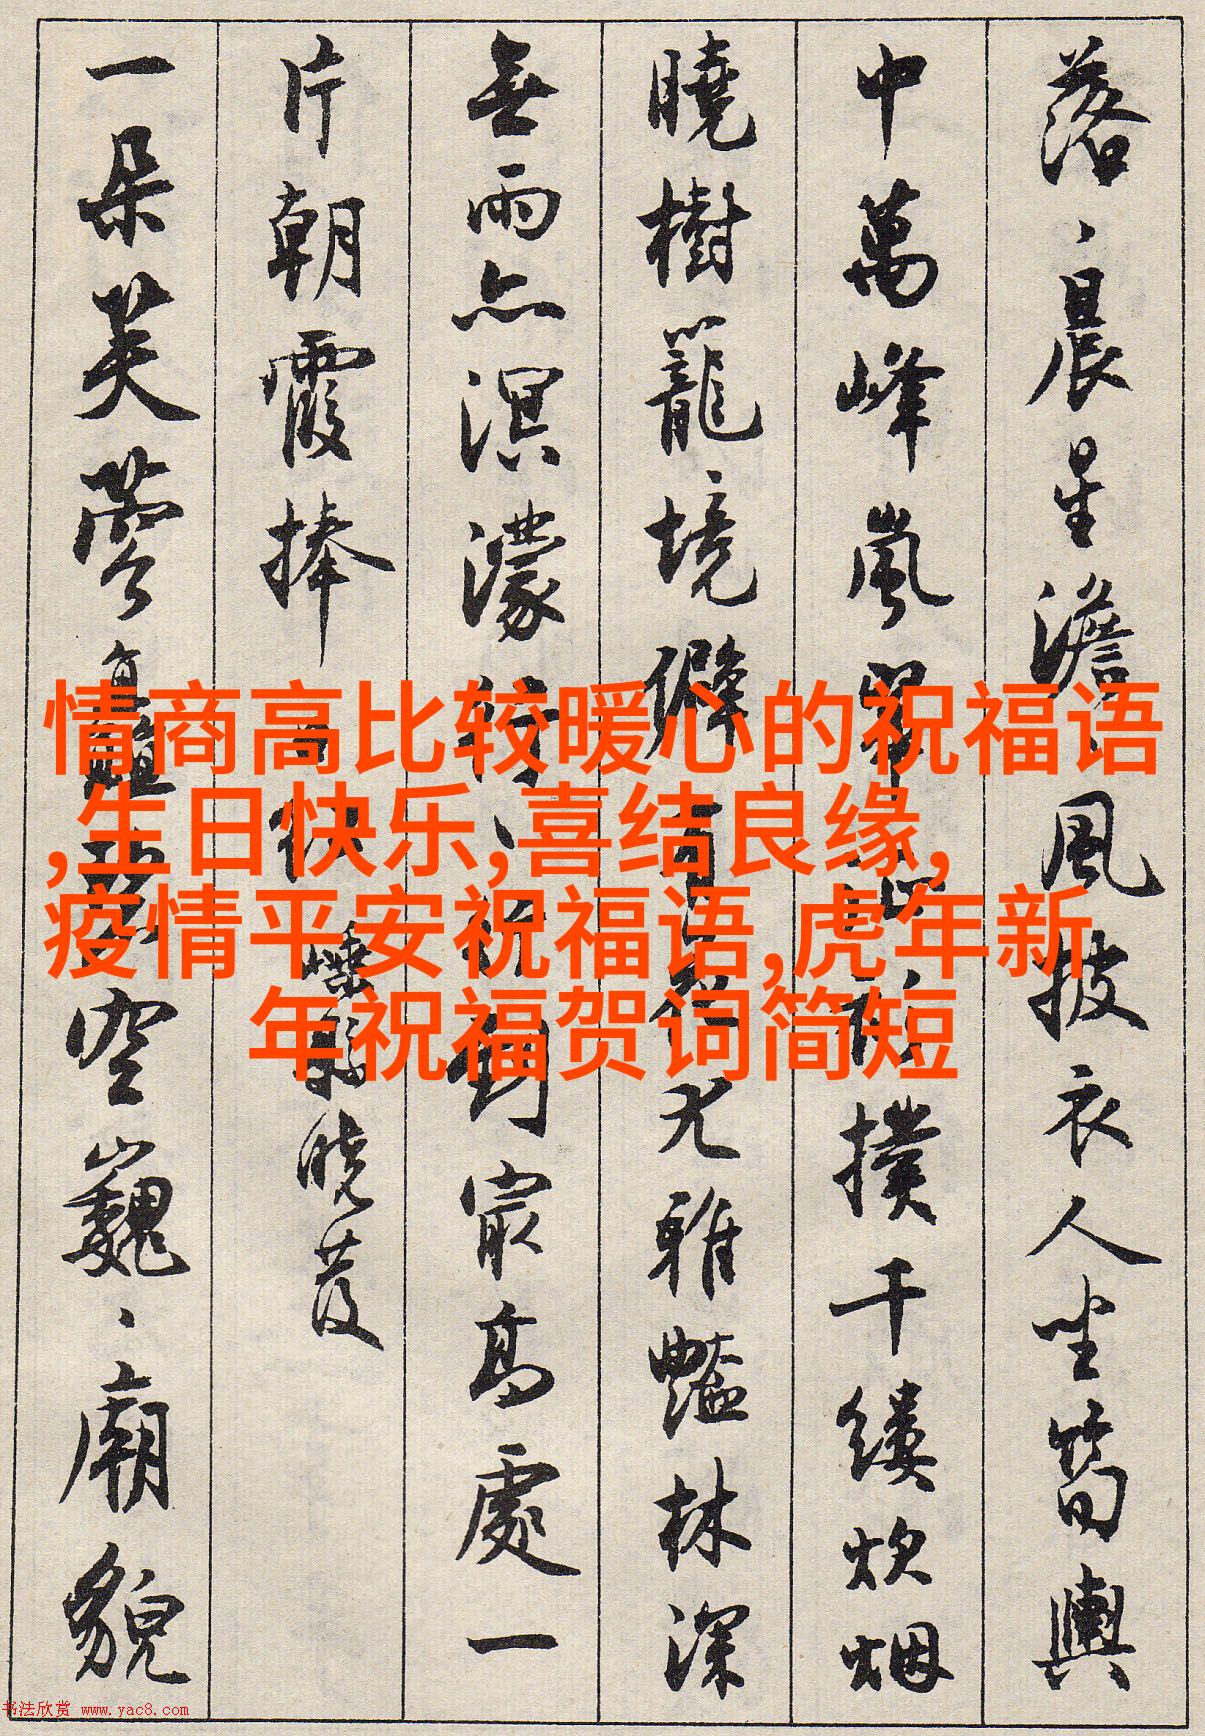 落、晨星澹、風披衣人坐筍輿
中萬峰嵐翠撲千缕炊烟
曉樹籠、境僻有花尤雅豔林深
無雨亦溟濛行、初到最高處一
片朝霞捧
曉发
一朵芙蓉矗碧空巍、廟貌
情商高比较暖心的祝福语
,生日快乐,喜结良缘,
疫情平安祝福语,虎年新
年祝福贺词简短
书法欣赏 www.yac8.com